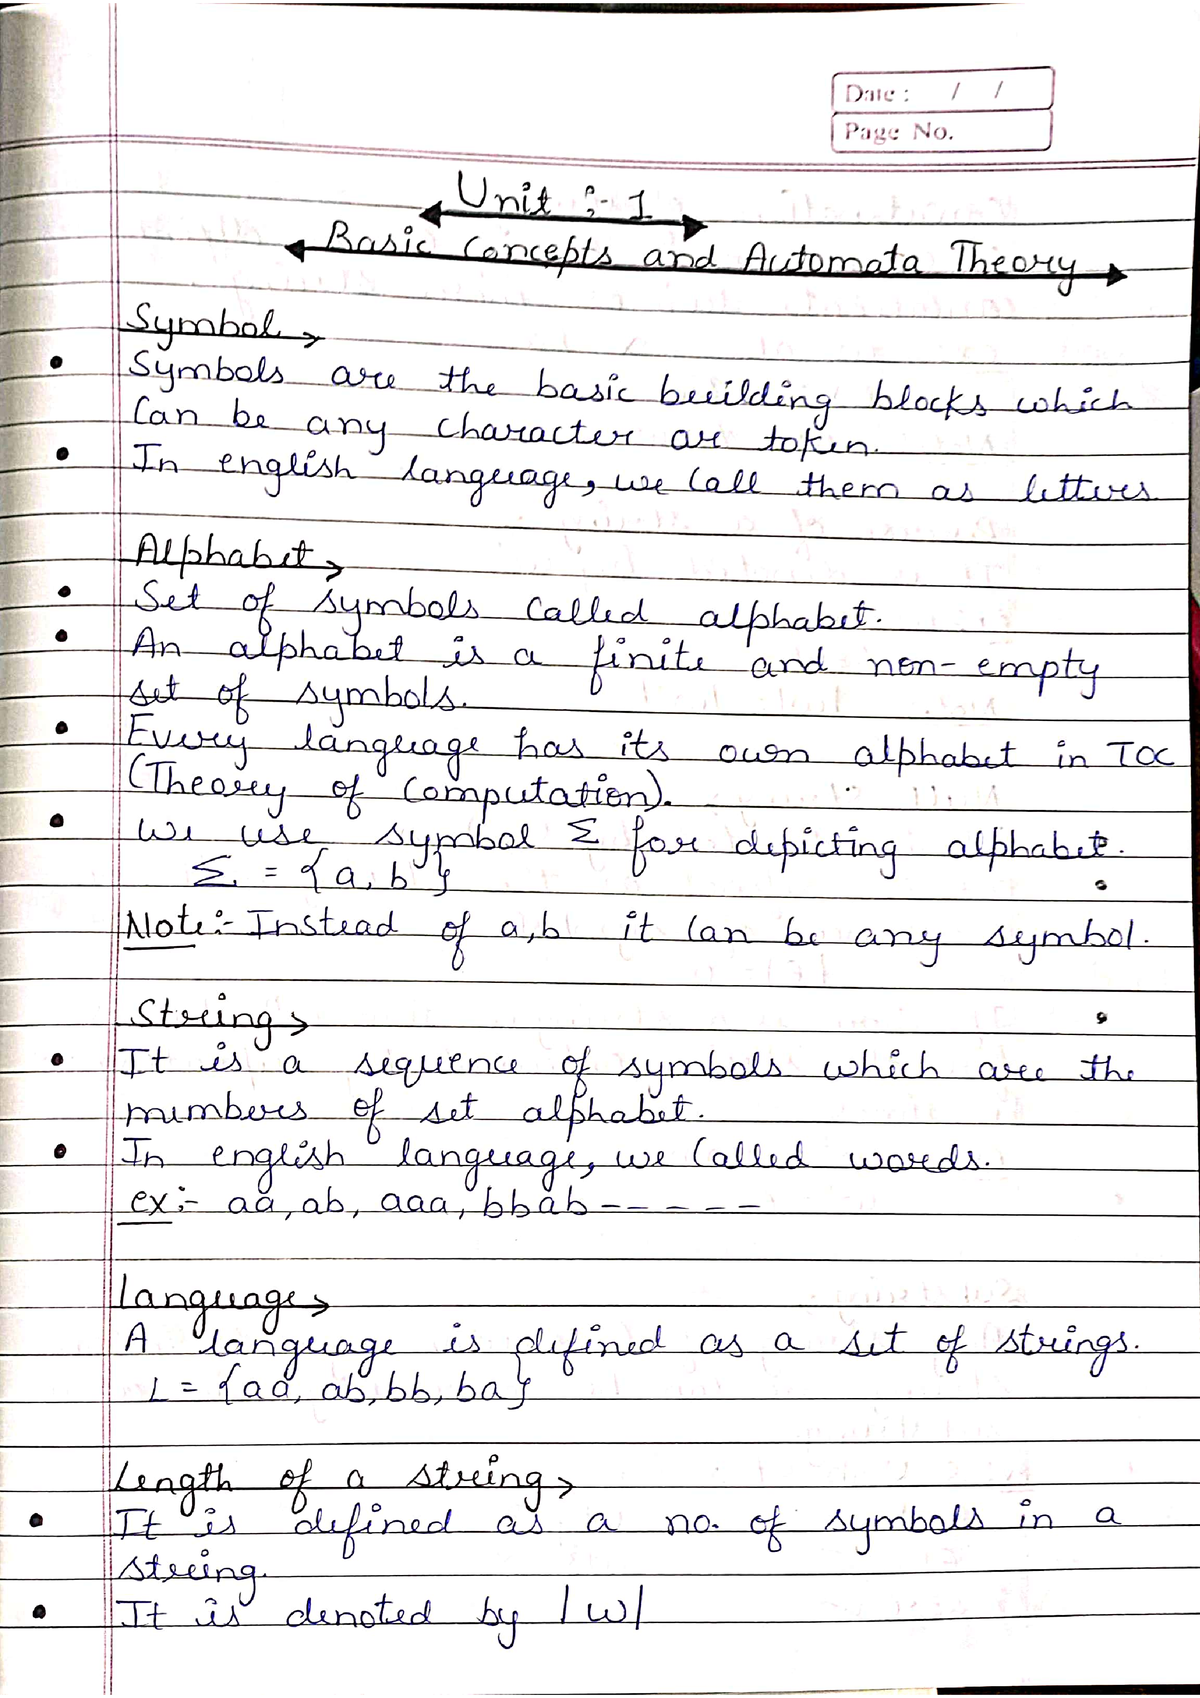 Date : / /
Page No.
Unit :- 1
Basic Concepts and Automata Theory
Symbol →
• Symbols are the basic building blocks which
Can be any character or token.
• In english language, we Call them as letters
Alphabet →
• Set of symbols Called alphabet.
• An alphabet is a finite and non-empty
set of symbols.
• Every language has its own alphabet in TOC
(Theory of Computation).
• We use symbol Σ for depicting alphabet.
Σ = {a, b}
Note:- Instead of a,b it Can be any symbol.
String →
• It is a sequence of symbols which are the
mumbers of set alphabet.
• In english language, we Called words.
ex:- aa, ab, aaa, bbab - - - - -
Language →
A language is defined as a set of strings.
L = {aa, ab, bb, ba}
Length of a string →
• It is defined as a no. of symbols in a
string.
• It is denoted by |w|